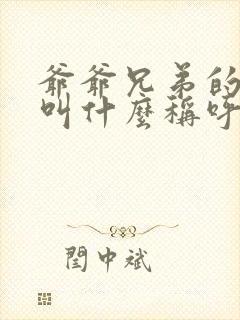 爺爺兄弟的
叫什麼稱呼
閏中斌